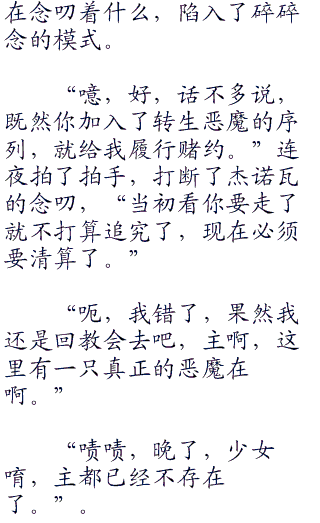 在念叨着什么，陷入了碎碎
念的模式。
“噫，好，话不多说，
既然你加入了转生恶魔的序
列，就给我履行赌约。”连
夜拍了拍手，打断了杰诺瓦
的念叨，“当初看你要走了
就不打算追究了，现在必须
要清算了。”
“呃，我错了，果然我
还是回教会去吧，主啊，这
里有一只真正的恶魔在
啊。”
“啧啧，晚了，少女
唷，主都已经不存在
了。”。